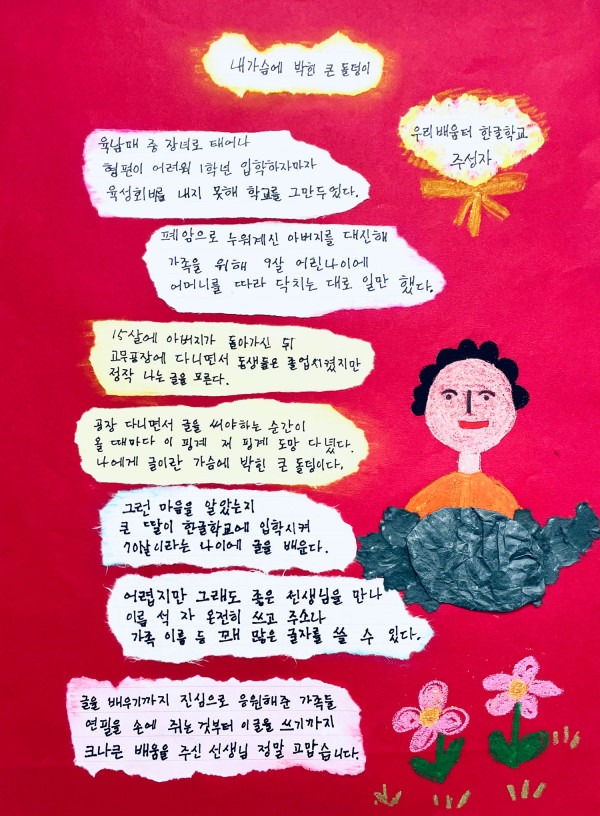 내가슴에 박힌 큰 돌덩이
우리배움터 한글학교
주성자
육남매 중 장녀로 태어나
형편이 어려워 1학년 입학하자마자
육성회비를 내지 못해 학교를 그만두었다.
폐암으로 누워계신 아버지를 대신해
가족을 위해 9살 어린나이에
어머니를 따라 닥치는 대로 일만 했다.
15살에 아버지가 돌아가신 뒤
고무공장에 다니면서 동생들은 졸업시켰지만
정작 나는 글을 모른다.
공장 다니면서 글을 써야하는 순간이
올 때마다 이 핑계 저 핑계 도망 다녔다.
나에게 글이란 가슴에 박힌 큰 돌덩이다.
그런 마음을 알았는지
큰 딸이 한글학교에 입학시켜
70살이라는 나이에 글을 배운다.
어렵지만 그래도 좋은 선생님을 만나
이름 석 자 온전히 쓰고 주소나
가족 이름 등 꽤 많은 글자를 쓸 수 있다.
글을 배우기까지 진심으로 응원해준 가족들
연필을 손에 쥐는것부터 이글을 쓰기까지
크나큰 배움을 주신 선생님 정말 고맙습니다.